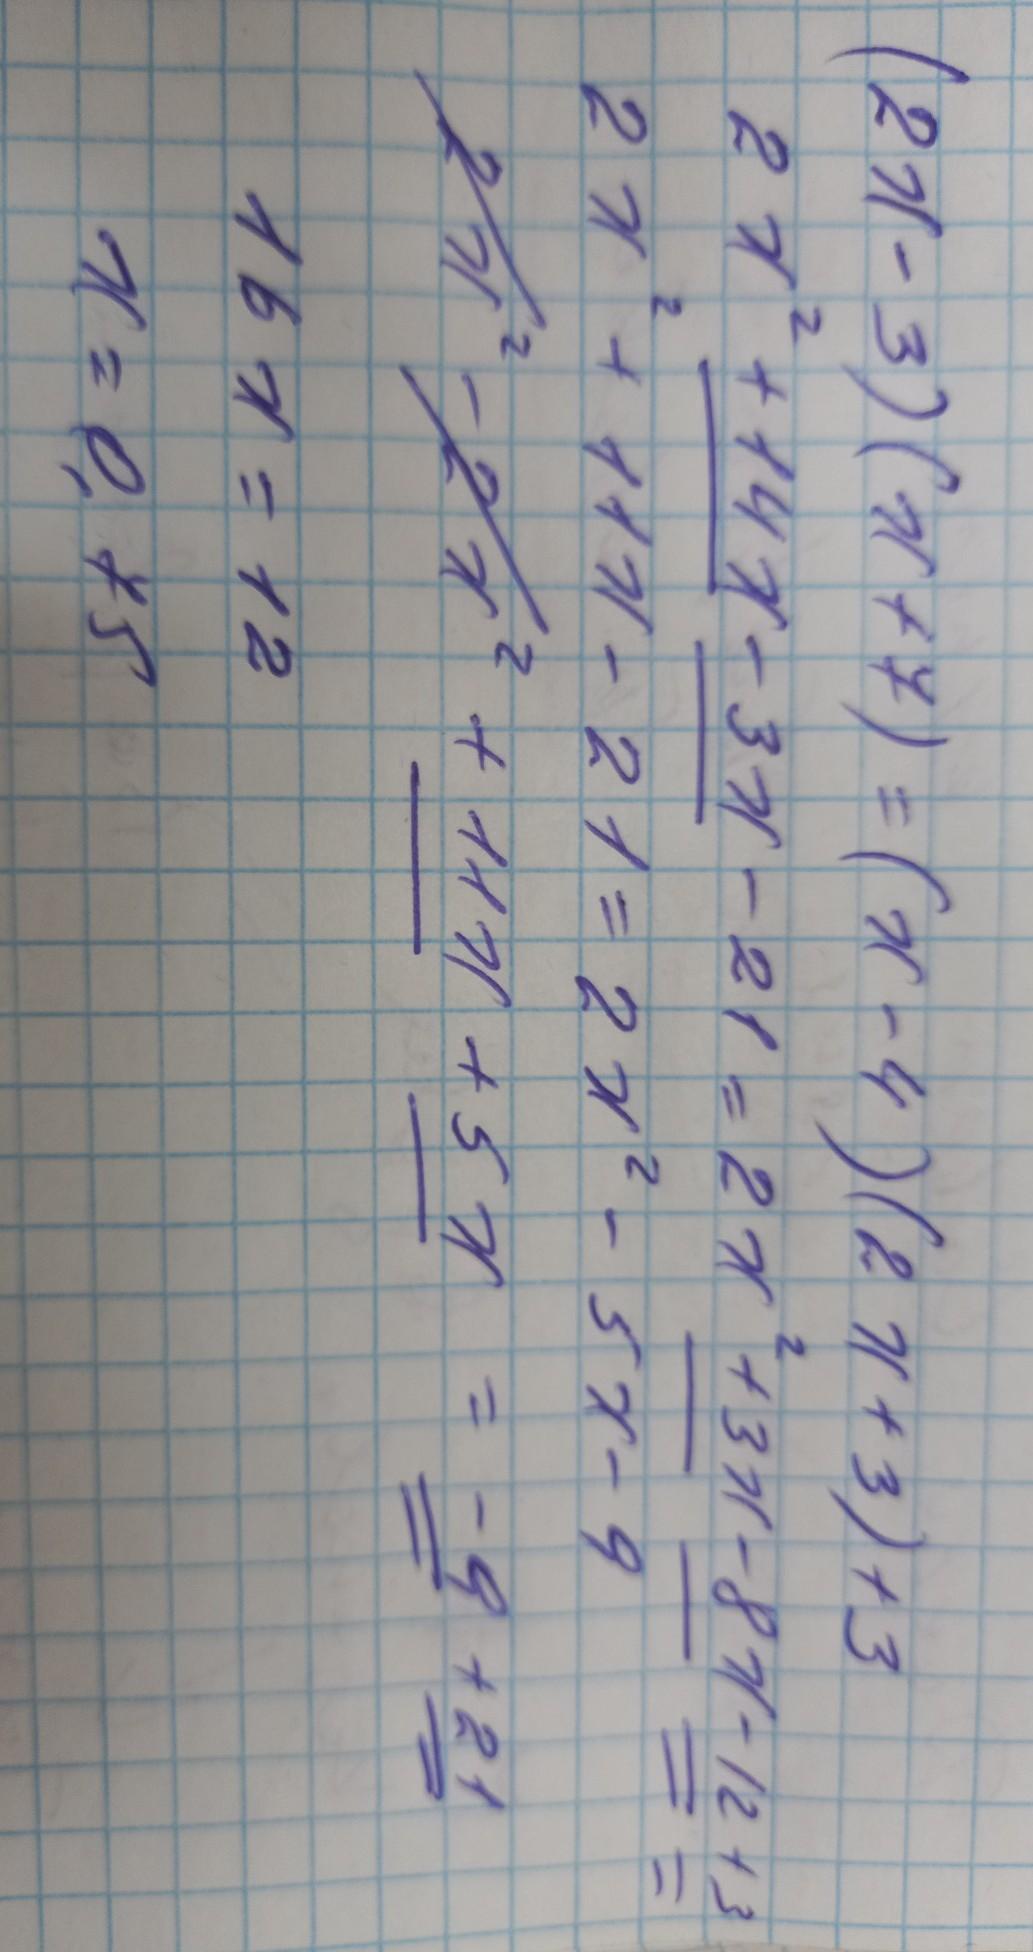 (2x-3)(x+7)=(x-4)(2x+3)+3
2x²+14x-3x-21=2x²+3x-8x-12+3
2x²+11x-21=2x²-5x-9
2x²-2x²+11x+5x=-9+21
16x=12
x=0,75